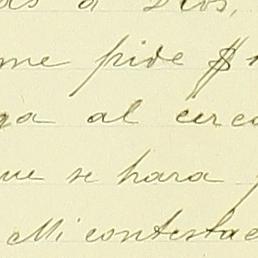 as a Dios,
me pide $
ga al cerca
ue se hara
Mi contestac